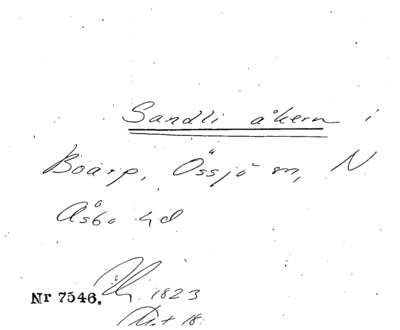 Sandli åkern i
Boarp, Össjö sn, N
Åsbo hd
Nr 7546. 1823
18.